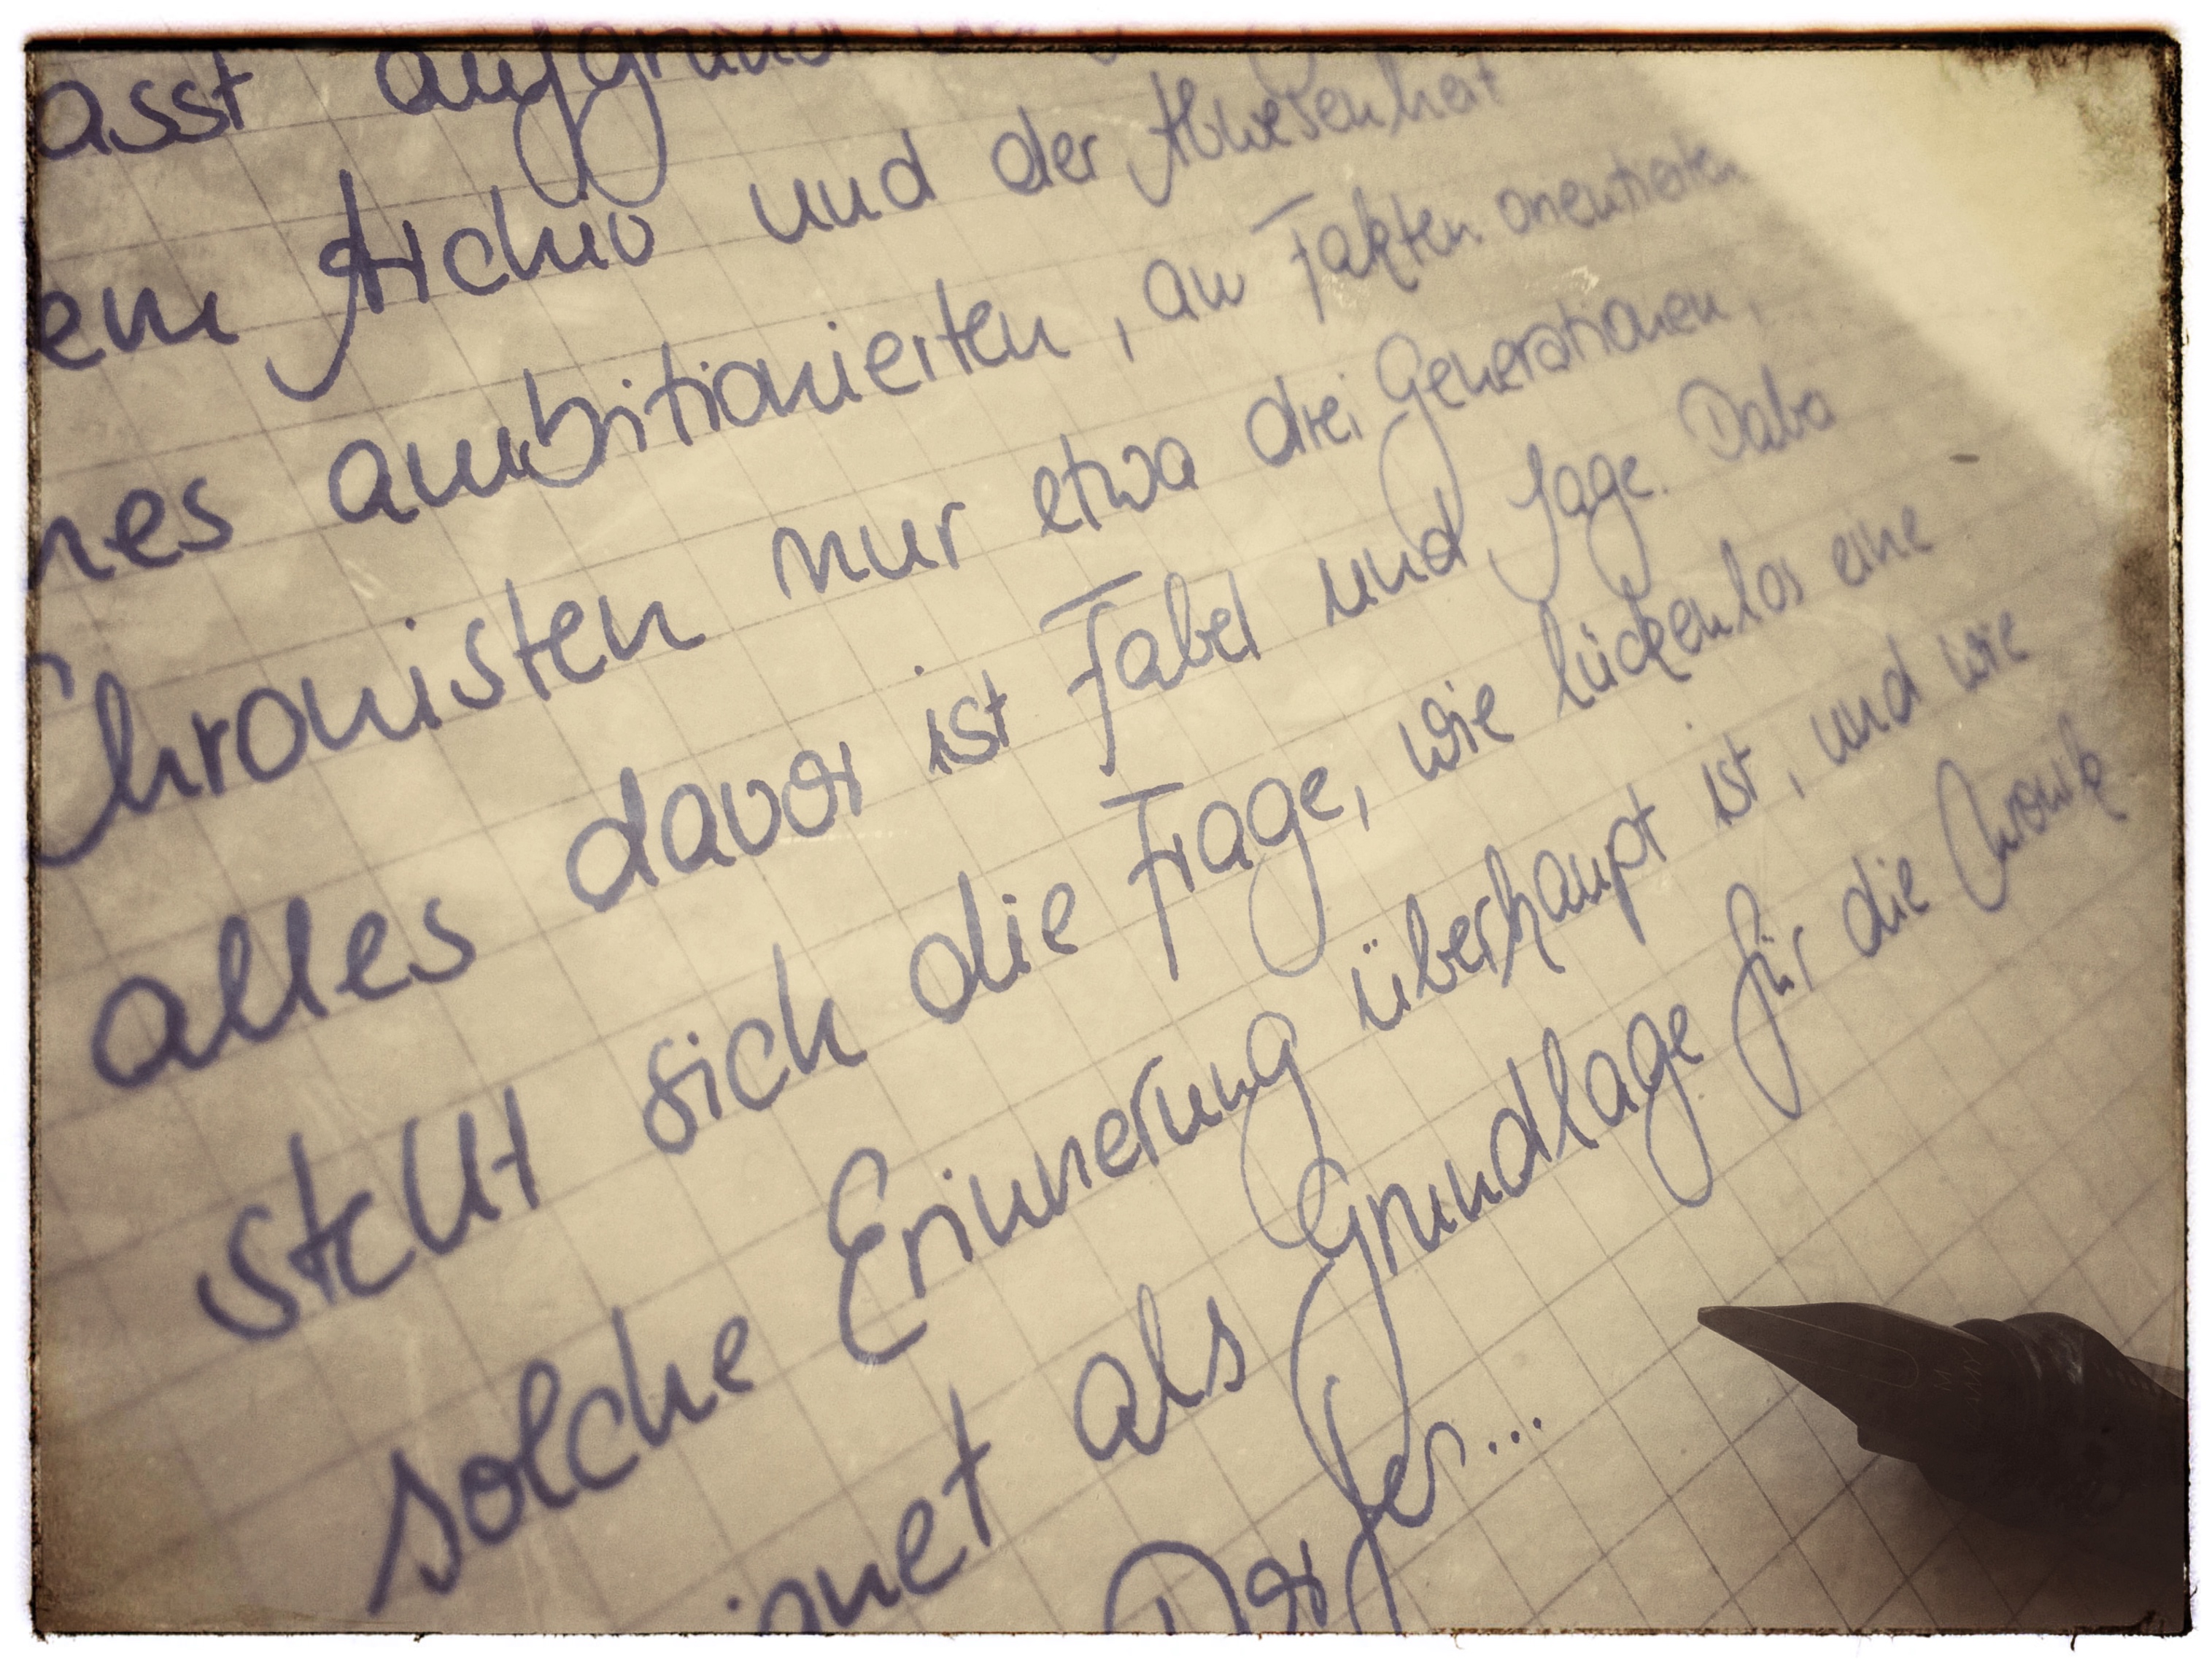 asst aufgrund
em Archiv und der Abwesenheit
nes ambitionierten, an Fakten orientierten
Chronisten nur etwa drei Generationen,
alles davor ist Fabel und Sage. Daba
stellt sich die Frage, wie lückenlos eine
solche Erinnerung überhaupt ist, und wie
ignet als Grundlage für die Chronik
Dorfes...